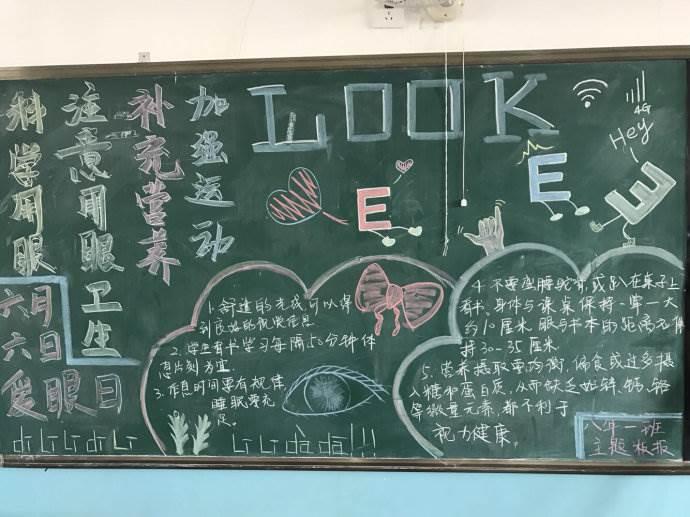 科学用眼
注意用眼卫生
补充营养
加强运动
LOOK
4G
Hey
E
E
E
六月
六日
爱眼日
1.舒适的光线可以得
到良好的视觉信息
2.学生看书学习每隔50分钟休
息片刻为宜.
3.作息时间要有规律,
睡眠要充
足.
4.不要歪腰驼背或趴在桌子上
看书、身体与课桌保持一拳一大
约10厘米 眼与书本的距离应保
持30-35厘米
5.营养摄取要均衡,偏食或过多摄
入糖和蛋白质,从而缺乏如锌、钙、铬
等微量元素,都不利于
视力健康。
八年一班
主题板报